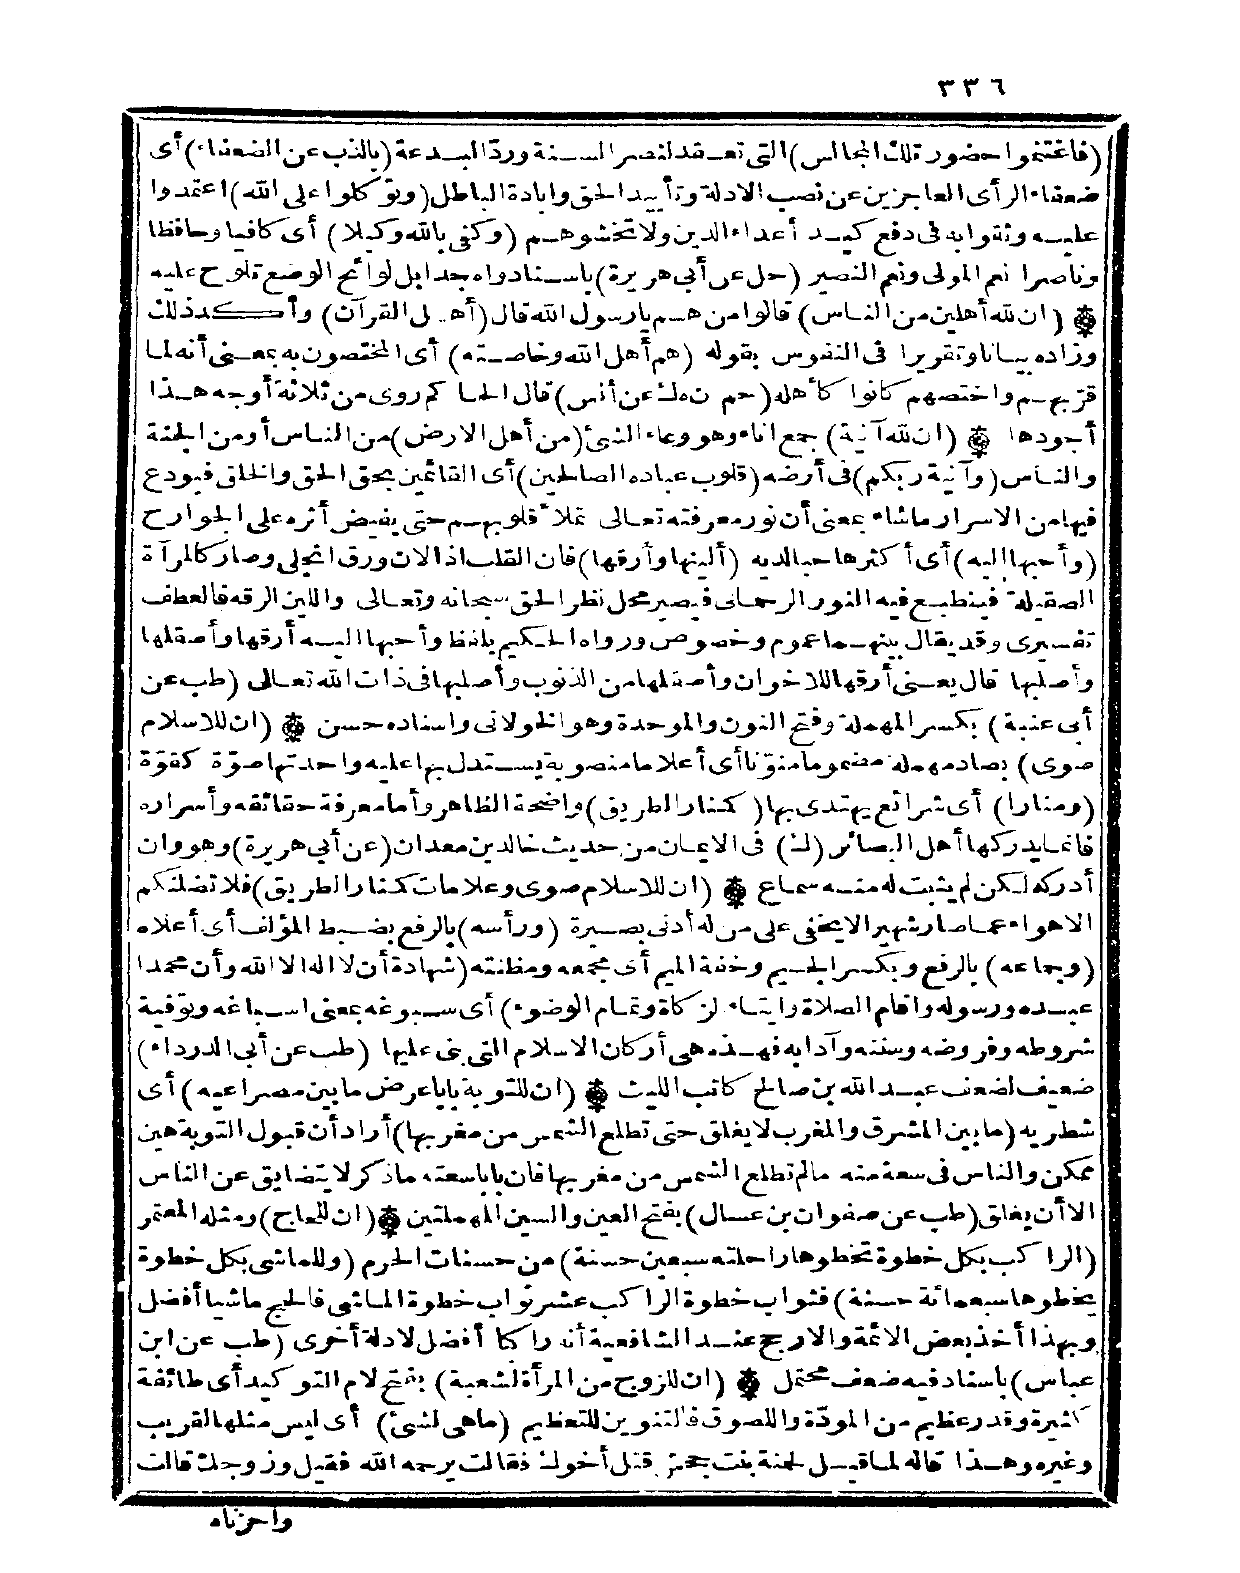 ٣٣٦
(فاغتنموا حضور تلك المجالس) التى تعقد لنصر السنة وردّ البدعة (بالذب عن الضعفاء) أى
ضعفاء الرأى العاجزين عن نصب الادلة وتأييد الحق وابادة الباطل (وتوكلوا على الله) اعتمدوا
عليه وثقوا به فى دفع كيد أعداء الدين ولا تخشوهم (وكفى بالله وكيلا) أى كافيا وحافظا
وناصرا نعم المولى ونعم النصير (حل عن أبى هريرة) باسناد واه جدا بل لوائح الوضع تلوح عليه
۞ (ان لله أهلين من الناس) قالوا من هم يا رسول الله قال (أهل القرآن) وأكد ذلك
وزاده بيانا وتقريرا فى النفوس بقوله (هم أهل الله وخاصته) أى المختصون به بمعنى أنه لما
قرّبهم واختصهم كانوا كأهله (حم ن ه ك عن أنس) قال الحاكم روى من ثلاثة أوجه هذا
أجودها ۞ (ان لله آنية) جمع اناء وهو وعاء الشئ (من أهل الارض) من الناس أو من الجنة
والناس (وآنية ربكم) فى أرضه (قلوب عباده الصالحين) أى القائمين بحق الحق والخلق فيودع
فيها من الاسرار ما شاء بمعنى أن نور معرفته تعالى تملأ قلوبهم حتى يفيض أثره على الجوارح
(وأحبها اليه) أى أكثرها حبا لديه (ألينها وأرقها) فان القلب اذا لان ورق انجلى وصار كالمرآة
الصقيلة فينطبع فيه النور الرحمانى فيصير محل نظر الحق سبحانه وتعالى واللين الرقه فالعطف
تفسيرى وقد يقال بينهما عموم وخصوص ورواه الحكيم بلفظ وأحبها اليه أرقها وأصقلها
وأصلبها قال يعنى أرقها للاخوان وأصقلها من الذنوب وأصلبها فى ذات الله تعالى (طب عن
أبى عنبة) بكسر المهملة وفتح النون والموحدة وهو الخولانى واسناده حسن ۞ (ان للاسلام
صوى) بصاد مهملة مضموما منوّنا أى أعلاما منصوبة يستدل بها عليه واحدتها صوّة كقوّة
(ومنارا) أى شرائع يهتدى بها (كمنار الطريق) واضحة الظاهر وأما معرفة حقائقه وأسراره
فانما يدركها أهل البصائر (ك) فى الايمان من حديث خالد بن معدان (عن أبى هريرة) وهو وان
أدركه لكن لم يثبت له منه سماع ۞ (ان للاسلام صوى وعلامات كمنار الطريق) فلا تضلنكم
الاهواء عما صار شهيرا لا يخفى على من له أدنى بصيرة (ورأسه) بالرفع بضبط المؤلف أى أعلاه
(وجماعه) بالرفع وبكسر الجيم وخفة الميم أى مجمعه ومظنته (شهادة أن لا اله الا الله وأن محمدا
عبده ورسوله واقام الصلاة وايتاء الزكاة وتمام الوضوء) أى سبوغه بمعنى اسباغه وتوفية
شروطه وفروضه وسننه وآدابه فهذه هى أركان الاسلام التى بنى عليها (طب عن أبى الدرداء)
ضعيف لضعف عبد الله بن صالح كاتب الليث ۞ (ان للتوبة بابا عرض ما بين مصراعيه) أى
شطريه (ما بين المشرق والمغرب لا يغلق حتى تطلع الشمس من مغربها) أراد أن قبول التوبة هين
ممكن والناس فى سعة منه مالم تطلع الشمس من مغربها فان بابا سعته ما ذكر لا يتضايق عن الناس
الا أن يغلق (طب عن صفوان بن عسال) بفتح العين والسين المهملتين ۞ (ان للحاج) ومثله المعتمر
(الراكب بكل خطوة تخطوها راحلته سبعين حسنة) من حسنات الحرم (وللماشى بكل خطوة
يخطوها سبعمائة حسنة) فثواب خطوة الراكب عشر ثواب خطوة الماشى فالحج ماشيا أفضل
وبهذا أخذ بعض الائمة والارجح عند الشافعية أنه راكبا أفضل لادلة أخرى (طب عن ابن
عباس) باسناد فيه ضعف محتمل ۞ (ان للزوج من المرأة لشعبة) بفتح لام التوكيد أى طائفة
كثيرة وقدر عظيم من المودّة واللصوق فالتنوين للتعظيم (ما هى لشئ) أى ليس مثلها لقريب
وغيره وهذا قاله لما قيل لحمنة بنت جحش قتل أخوك فقالت يرحمه الله فقيل وزوجك قالت
واحزناه